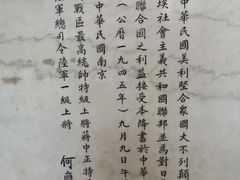 中華民國美利堅合衆國大不列顛
埃社會主義共和國聯邦並為對日
聯合國之利益接受本降書於中華
(公曆一九四五年)九月九日午
中華民國南京
戰區最高統帥特級上將蔣中正特
陸軍總司令陸軍一級上將 何